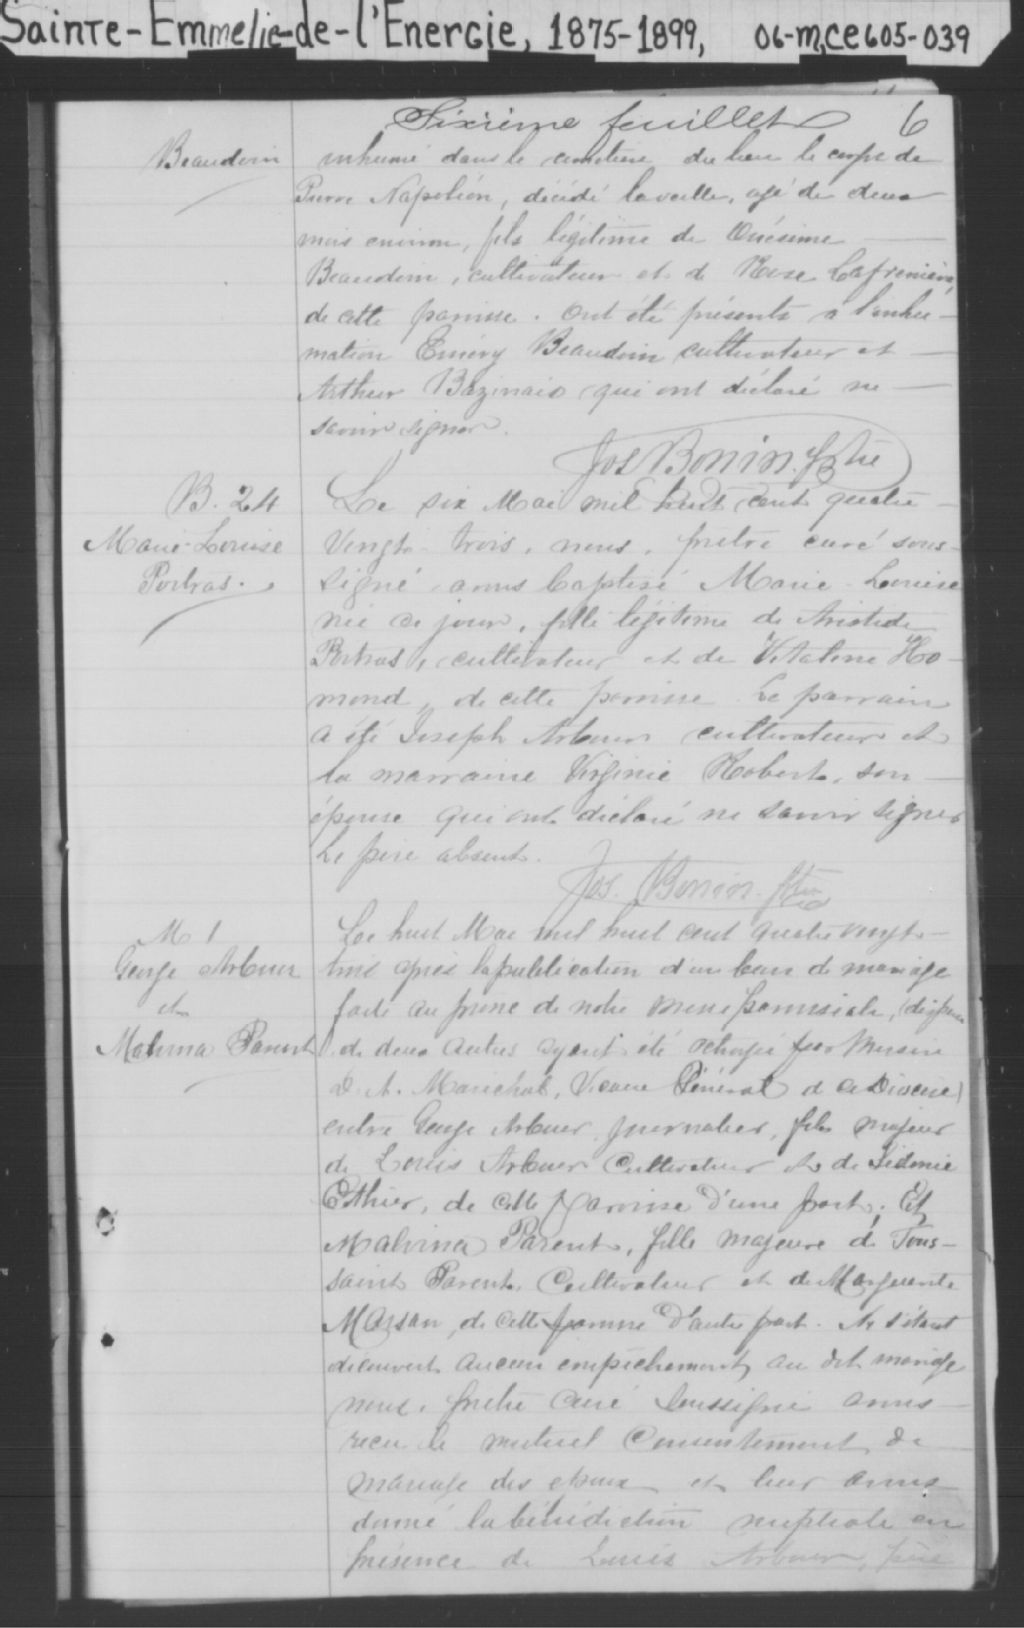 Sainte-Emmelie-de-l'Energie, 1875-1899, 06-M,CE605-039
Sixième feuillet 6
Beaudoin
inhumé dans le cimetière du lieu le corps de
Pierre Napoléon, décédé la veille, agé de deux
mois environ, fils légitime de Onésime
Beaudoin, cultivateur et de Rose Lafrenière,
de cette paroisse. Ont été présents a l'inhu-
mation Emery Beaudoin cultivateur et
Arthur Bazinais qui ont déclaré ne
savoir signer.
Jos Bonin. Ptre
B. 24
Marie-Louise
Poitras.
Le six Mai mil huit cent quatre-
Vingt-trois, nous, prêtre curé sous-
signé avons baptisé Marie-Louise
née ce jour, fille légitime de Aristide
Poitras, cultivateur et de Vitaline Ho-
mond, de cette paroisse. Le parrain
a été Joseph Arbour cultivateur et
la marraine Virginie Robert, son
épouse qui ont déclaré ne savoir signer
Le père absent.
Jos. Bonin. Ptre
M 1
George Arbour
et
Malvina Parent
Le huit Mai mil huit cent quatre vingt-
trois après la publication d'un banc de mariage
faite au prone de notre messe paroissiale, (dispense
de deux autres ayant été octroyée par Messire
L. A. Maréchal, Vicaire Général de ce Diocèse)
entre George Arbour, journalier, fils majeur
de Louis Arbour Cultivateur et de Sidonie
Ethier, de cette Paroisse d'une part; Et
Malvina Parent, fille majeure de Tous-
saint Parent, Cultivateur et de Marguerite
Marsan, de cette paroisse d'autre part. Ne s'étant
découvert aucun empêchement au dit mariage
nous, prêtre curé soussigné avons
reçu le mutuel Consentement de
mariage des époux et leur avons
donné la bénédiction nuptiale en
présence de Louis Arbour, père